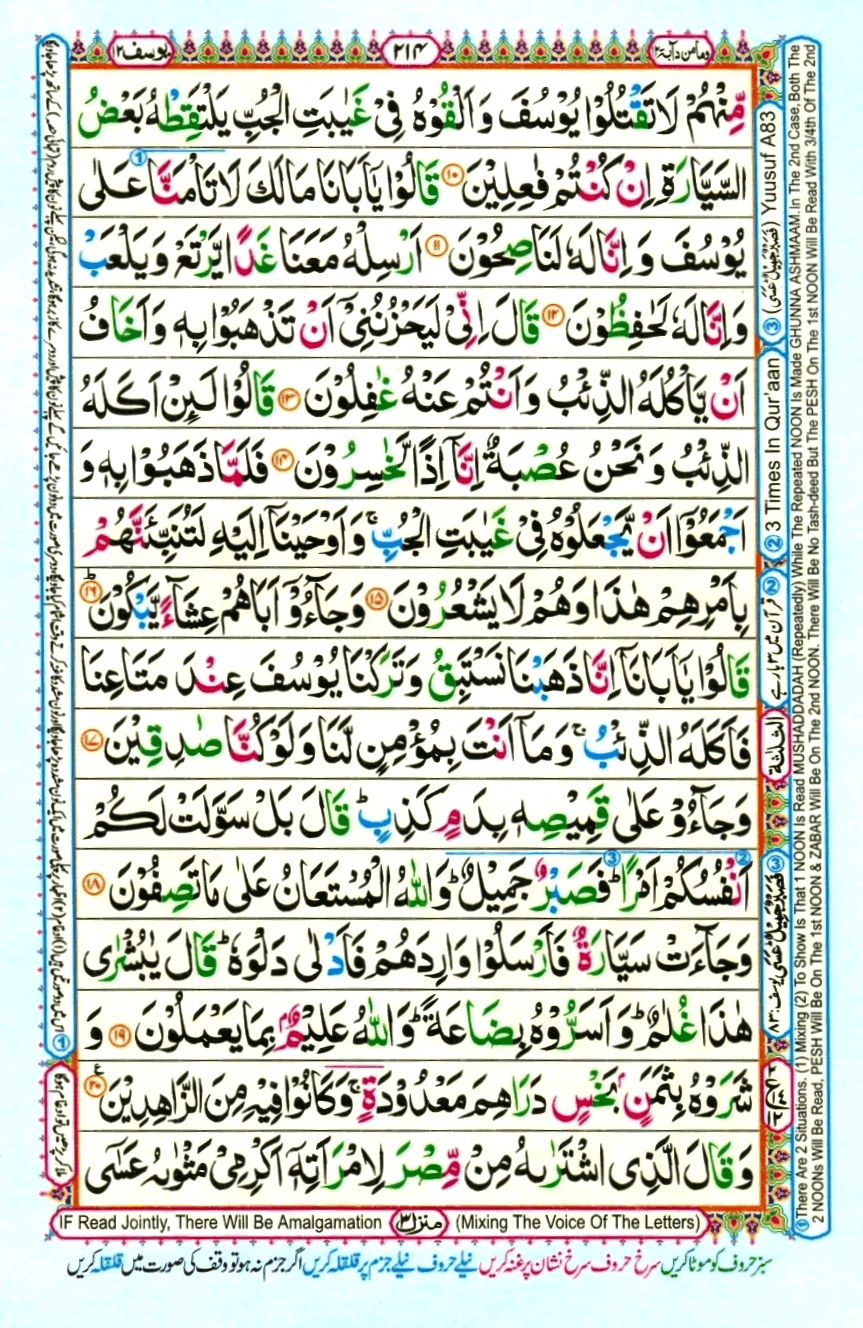 وما من دآبة ۱۲
۲۱۴
يوسف ۱۲
مِّنْهُمْ لَا تَقْتُلُوْا يُوْسُفَ وَاَلْقُوْهُ فِىْ غَيٰبَتِ الْجُبِّ يَلْتَقِطْهُ بَعْضُ
السَّيَّارَةِ اِنْ كُنْتُمْ فٰعِلِيْنَ ۱۰ قَالُوْا يٰۤاَبَانَا مَالَكَ لَا تَاْمَنَّا عَلٰى
يُوْسُفَ وَاِنَّا لَهٗ لَنَاصِحُوْنَ ۱۱ اَرْسِلْهُ مَعَنَا غَدًا يَّرْتَعْ وَيَلْعَبْ
وَاِنَّا لَهٗ لَحٰفِظُوْنَ ۱۲ قَالَ اِنِّىْ لَيَحْزُنُنِىْۤ اَنْ تَذْهَبُوْا بِهٖ وَاَخَافُ
اَنْ يَّاْكُلَهُ الذِّئْبُ وَاَنْتُمْ عَنْهُ غٰفِلُوْنَ ۱۳ قَالُوْا لَئِنْ اَكَلَهُ
الذِّئْبُ وَنَحْنُ عُصْبَةٌ اِنَّاۤ اِذًا لَّخٰسِرُوْنَ ۱۴ فَلَمَّا ذَهَبُوْا بِهٖ وَ
اَجْمَعُوْۤا اَنْ يَّجْعَلُوْهُ فِىْ غَيٰبَتِ الْجُبِّ ۚ وَاَوْحَيْنَاۤ اِلَيْهِ لَتُنَبِّئَنَّهُمْ
بِاَمْرِهِمْ هٰذَا وَهُمْ لَا يَشْعُرُوْنَ ۱۵ وَجَآءُوْۤ اَبَاهُمْ عِشَآءً يَّبْكُوْنَ ؕ ۱۶
قَالُوْا يٰۤاَبَانَاۤ اِنَّا ذَهَبْنَا نَسْتَبِقُ وَتَرَكْنَا يُوْسُفَ عِنْدَ مَتَاعِنَا
فَاَكَلَهُ الذِّئْبُ ۚ وَمَاۤ اَنْتَ بِمُؤْمِنٍ لَّنَا وَلَوْ كُنَّا صٰدِقِيْنَ ۱۷
وَجَآءُوْ عَلٰى قَمِيْصِهٖ بِدَمٍ كَذِبٍ ؕ قَالَ بَلْ سَوَّلَتْ لَكُمْ
اَنْفُسُكُمْ اَمْرًا ؕ فَصَبْرٌ جَمِيْلٌ ؕ وَاللّٰهُ الْمُسْتَعَانُ عَلٰى مَا تَصِفُوْنَ ۱۸
وَجَآءَتْ سَيَّارَةٌ فَاَرْسَلُوْا وَارِدَهُمْ فَاَدْلٰى دَلْوَهٗ ؕ قَالَ يٰبُشْرٰى
هٰذَا غُلٰمٌ ؕ وَاَسَرُّوْهُ بِضَاعَةً ؕ وَاللّٰهُ عَلِيْمٌۢ بِمَا يَعْمَلُوْنَ ۱۹ وَ
شَرَوْهُ بِثَمَنٍۢ بَخْسٍ دَرَاهِمَ مَعْدُوْدَةٍ ۚ وَكَانُوْا فِيْهِ مِنَ الزَّاهِدِيْنَ ۲۰ ع
وَقَالَ الَّذِى اشْتَرٰىهُ مِنْ مِّصْرَ لِامْرَاَتِهٖۤ اَكْرِمِىْ مَثْوٰىهُ عَسٰۤى
② 3 Times In Qur'aan ③ (فَصَبْرٌ جَمِيْلٌ عَسَى) Yuuusuf A83
② قرآن میں ۳ بار ہے
الثلثة
③ فَصَبْرٌ جَمِيْلٌ عَسَى يوسف: ۸۳
①There Are 2 Situations. (1) Mixing (2) To Show Is That 1 NOON Is Read MUSHADDADAH (Repeatedly) While The Repeated NOON Is Made GHUNNA ASHMAAM.In The 2nd Case,Both The
2 NOONs Will Be Read, PESH Will Be On The 1st NOON & ZABAR Will Be On The 2nd NOON. There Will Be No Tash-deed But The PESH On The 1st NOON Will Be Read With 3/4th Of The 2nd
IF Read Jointly, There Will Be Amalgamation
منزل ۳
(Mixing The Voice Of The Letters)
سبز حروف کو موٹا کریں سرخ حروف سرخ نشان پر غنہ کریں نیلے حروف نیلے جزم پر قلقلہ کریں اگر جزم نہ ہو تو وقف کی صورت میں قلقلہ کریں